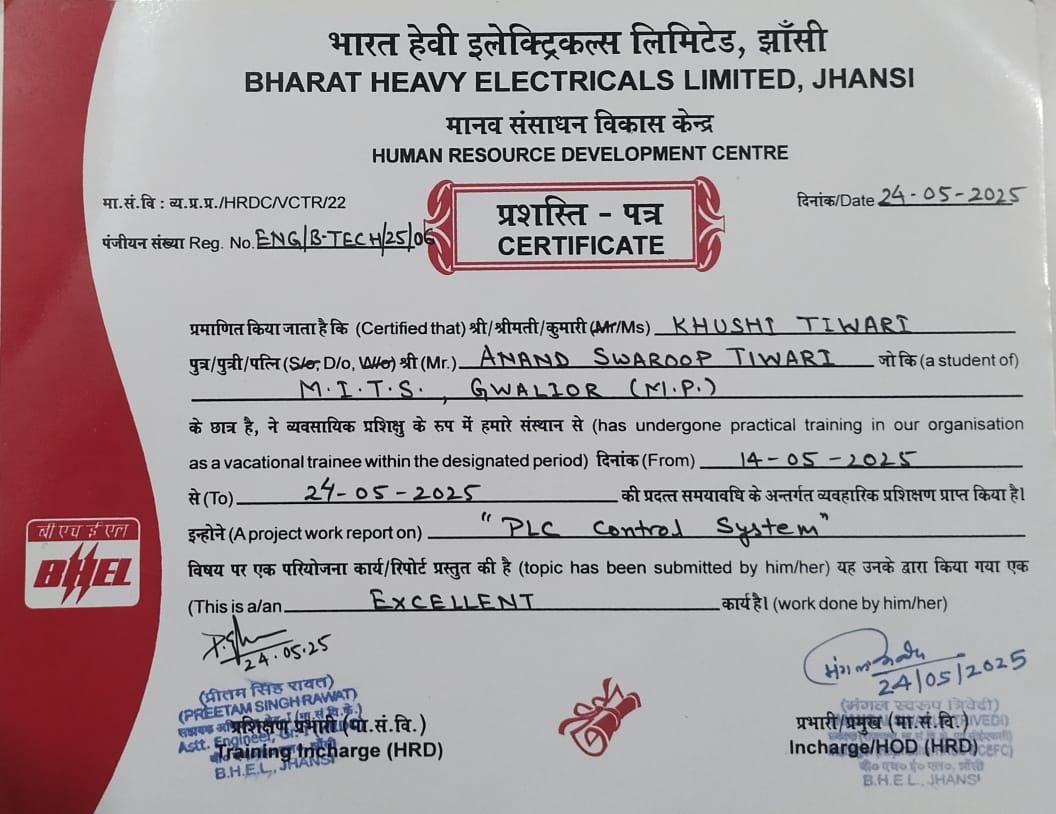 भारत हेवी इलेक्ट्रिकल्स लिमिटेड, झाँसी
BHARAT HEAVY ELECTRICALS LIMITED, JHANSI
मानव संसाधन विकास केन्द्र
HUMAN RESOURCE DEVELOPMENT CENTRE
मा.सं.वि : व्य.प्र.प्र./HRDC/VCTR/22
दिनांक/Date 24-05-2025
पंजीयन संख्या Reg. No. ENG/B-TECH/25/06
प्रशस्ति - पत्र
CERTIFICATE
प्रमाणित किया जाता है कि (Certified that) श्री/श्रीमती/कुमारी (Mr/Ms) KHUSHI TIWARI
पुत्र/पुत्री/पत्नि (S/o, D/o, W/o) श्री (Mr.) ANAND SWAROOP TIWARI जो कि (a student of)
M.I.T.S., GWALIOR (M.P.)
के छात्र है, ने व्यवसायिक प्रशिक्षु के रुप में हमारे संस्थान से (has undergone practical training in our organisation
as a vacational trainee within the designated period) दिनांक (From) 14-05-2025
से (To) 24-05-2025 की प्रदत्त समयावधि के अन्तर्गत व्यवहारिक प्रशिक्षण प्राप्त किया है।
इन्होने (A project work report on) "PLC Control System"
विषय पर एक परियोजना कार्य/रिपोर्ट प्रस्तुत की है (topic has been submitted by him/her) यह उनके द्वारा किया गया एक
(This is a/an EXCELLENT कार्य है। (work done by him/her)
बी एच ई एल
BHEL
24.05.25
(प्रीतम सिंह रावत)
(PREETAM SINGH RAWAT)
प्रशिक्षण प्रभारी (मा.सं.वि.)
Astt. Engineer
Training Incharge (HRD)
B.H.E.L., JHANSI
24/05/2025
(मंगल स्वरूप त्रिवेदी)
प्रभारी/प्रमुख (मा.सं.वि.)
Incharge/HOD (HRD)
बी० एच० ई० एल०, झाँसी
B.H.E.L., JHANSI